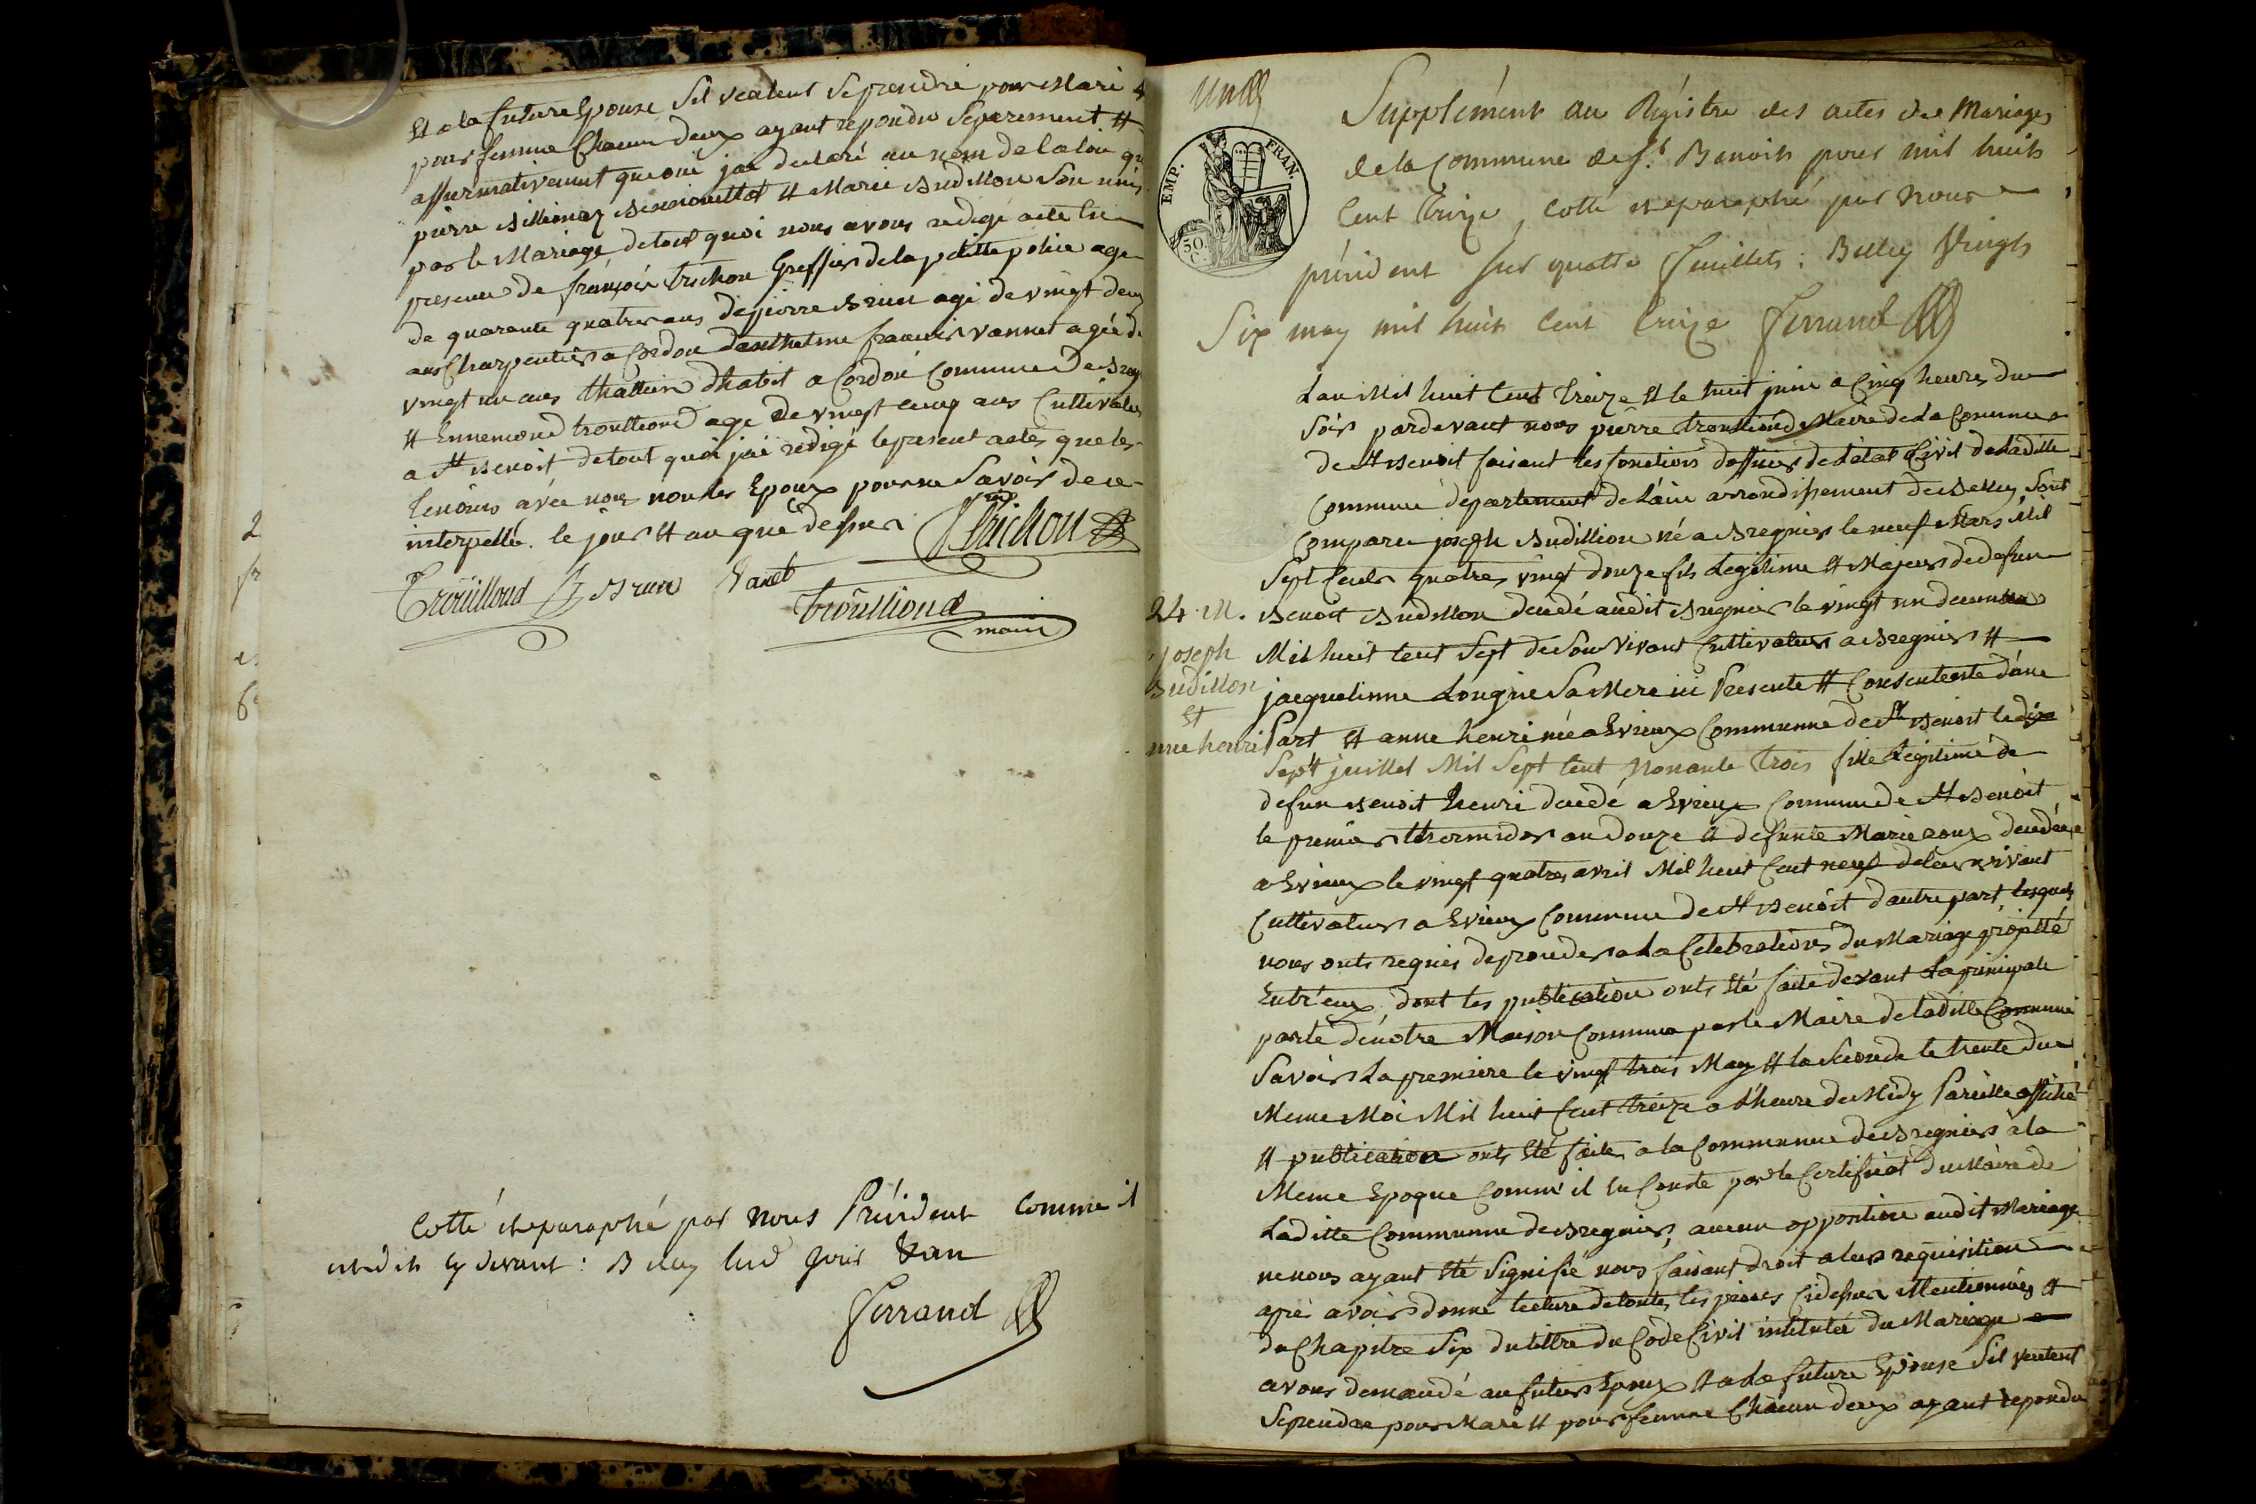 Et a la future Epouse Sil veulent Se prendre pour Mari &
pour femme Chacun deux ayant repondu Séparement &
affirmativement que oui jai declaré au nom de la loi que
pierre Billionaz Bienionillet & Marie Budillon Son unis
par le Mariage de tout quoi nous avons redigé acte en
presence de françois trichon Greffier de la petitte police age
de quarante quatre ans de pierre Brun agé de vingt deux
ans Charpentier a Cordon danthelme francois vannet agée de
vingt un ans thallieur dhabit a Cordon Commune de Breg
& Ennemond troullioud age de vingt cinq ans Cultivateur
a St Benoit de tout quoi jai redigé le present acte que les
temoins avec nous non les Epoux pour ne Savoir de ce
interpellé. le jour & an que dessus Trichon
Troüilloud Brun Vanet
troüllioud
maire
Cotté et paraphé par nous Président Comme il
est dit cy devant : Belley lesd jour & an
Ferrand
2
6
Un
Supplément au Régistre des actes de Mariages
de la Commune de St Benoit pour mil huit
Cent treize, Cotté et paraphé par nous
président sur quatre feuillets : Belley vingt
Six may mil huit Cent treize Ferrand
EMP. FRAN.
50. C.
Lan Mil huit Cent treize & le huit juin a Cinq heures du
Soir pardevant nous pierre troullioud Maire de La Commune
de St Benoit faisant les fonctions dofficier de Létat Civil de Laditte
Commune département de Láin arrondissement de Belley Sont
Comparu joseph Budillion né a Bregnier le neuf Mars Mil
Sept Cents quatre vingt douze fils Legitime & Majeur de defun
24. M. Benoit Budillon decedé audit Bregnier le vingt un decembre
joseph Mil huit Cent Sept de Son vivant Cultivateur a Bregnier &
Budillon jacquelinne Longne Sa Mere ici Presente & Consentente d'une
Et
nne henri Part & anne henri née a Evieux Communne de St Benoit le dix
Sept juillet Mil Sept Cent Nonante trois fille Legitime de
defun Benoit henri decedé a Evieux Commune de St Benoit
le premier thermidor an douze & defunte Marie roux decedée
a Evieux le vingt quatre avril Mil huit Cent neuf de leur vivant
Cultivateur a Evieux Commune de St Benoit d'autre part, Lesquels
nous onts requis de proceder a La Celebration du Mariage projetté
Entr'eux, dont les publication onts Eté faite devant La principale
porte de notre Maison Commune par le Maire de Laditte Commune
Savoir La premiere le vingt trois May & la Seconde le trente du
Meme Moi Mil huit Cent treize a L'heure de Midy Pareille affiche
& publication onts Eté faite a la Communne de Bregnier à la
Meme Epoque Comm'il en Conste par le Certificat du Maire de
Laditte Communne de Bregnier, aucun opposition audit Mariage
ne nous ayant Eté Signifié nous faisant droit a leur requisition
apré avoir donné lecture de toutes les pieces Cidessus Mentionnées &
du Chapitre Six du tittre du Code Civil intitulée du Mariage
avons demandé au futur Epoux & a La future Epouse Sil veulent
Se prendre pour Mari & pour femme Chacun deux ayant repondu